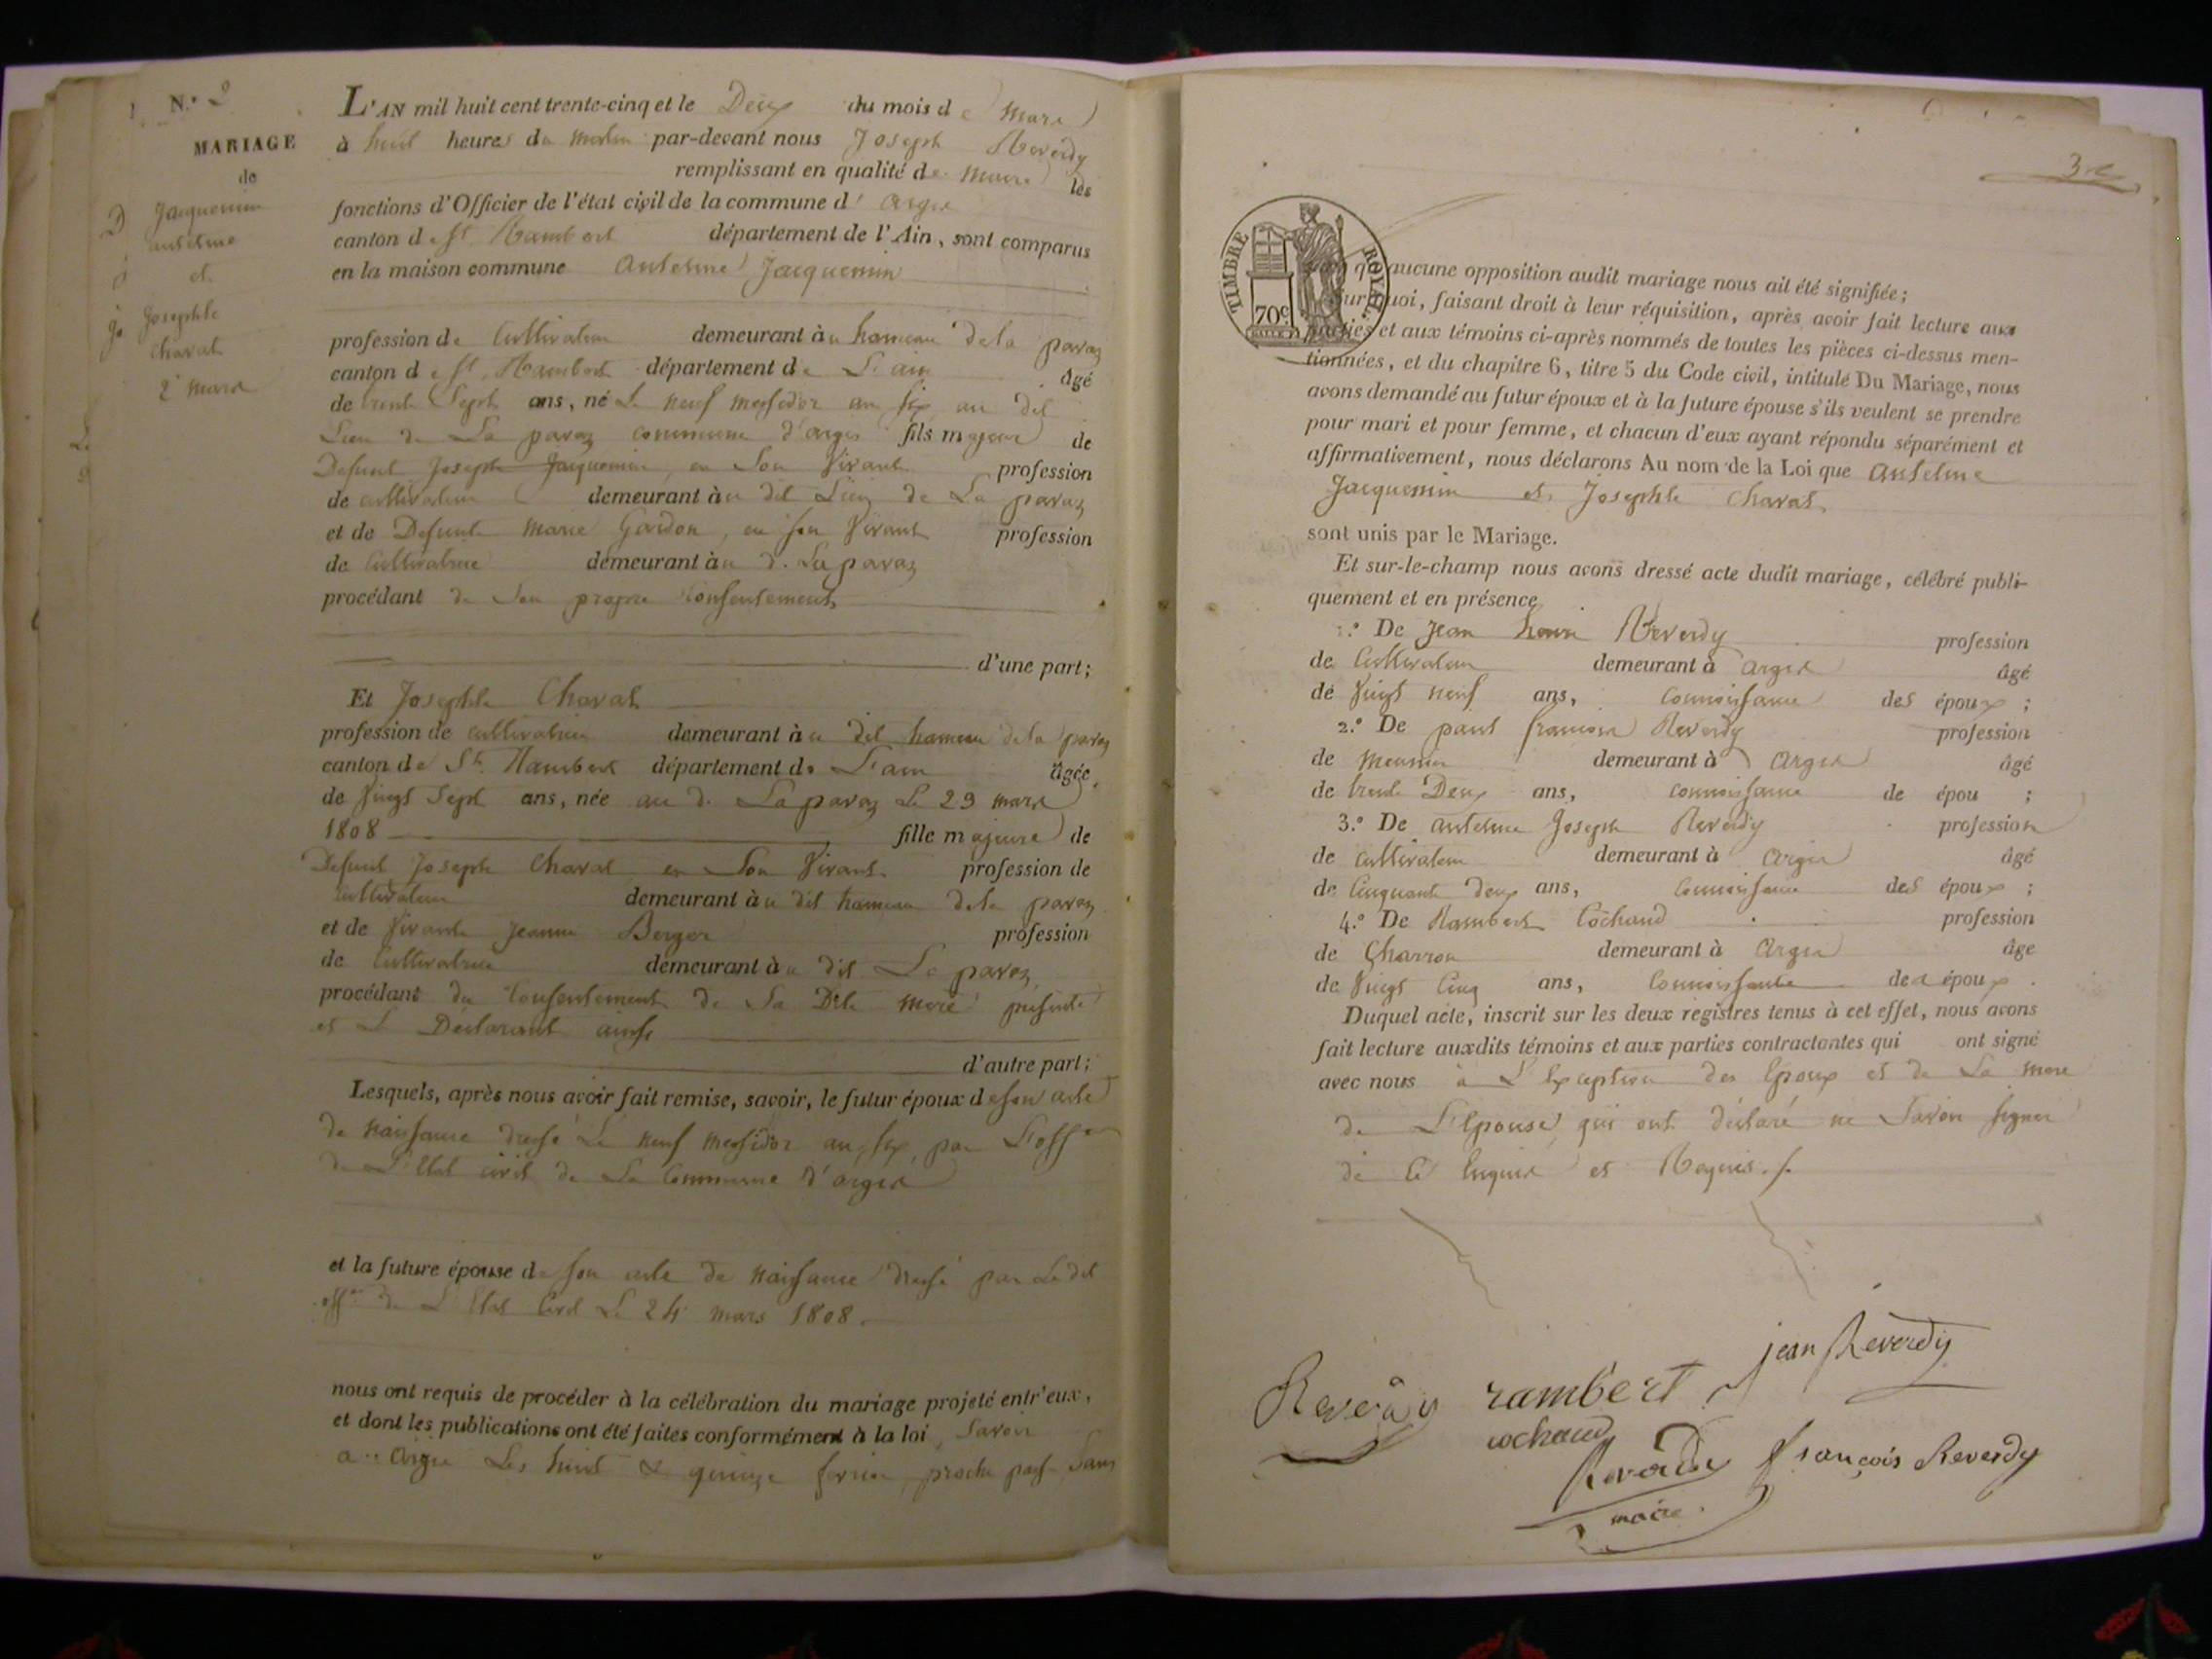 N.º 2
MARIAGE
de
Jacquemin
antelme
et
Josephte
Charat
2 mars
L'AN mil huit cent trente-cinq et le Deux du mois de mars
à huit heures du matin par-devant nous Joseph Reverdy
remplissant en qualité de maire les
fonctions d'Officier de l'état civil de la commune d'argis
canton de St Rambert département de l'Ain, sont comparus
en la maison commune antelme Jacquemin
profession de Cultivateur demeurant àu hameau de la paraz
canton de St Rambert département de L'ain âgé
de trente Sept ans, né Le neuf messidor an six au dit
Lieu de La paraz commune d'argis fils majeur de
Defunt Joseph Jacquemin, en Son Vivant profession
de cultivateur demeurant àu dit Lieu de La paraz
et de Defunte marie Gardon, en son Vivant profession
de Cultivatrice demeurant àu d. La paraz
procédant de Son propre Consentement
d'une part;
Et Josephte Charat
profession de cultivatrice demeurant àu dit hameau de la paraz
canton de St Rambert département de L'ain âgée
de Vingt Sept ans, née au d. La paraz Le 23 mars
1808 fille majeure de
Defunt Joseph Charat en Son Vivant profession de
Cultivateur demeurant àu dit hameau de la paraz
et de Vivante Jeanne Berger profession
de Cultivatrice demeurant àu dit La paraz
procédant du Consentement de Sa Dite mere présente
et Le Déclarant ainsi
d'autre part;
Lesquels, après nous avoir fait remise, savoir, le futur époux de son acte
de naissance dressé Le neuf messidor an six, par L'offer
de L'Etat civil de La Commune d'argis
et la future épouse de son acte de naissance dressé par Le dit
offer de L'Etat Civil Le 24 mars 1808.
nous ont requis de procéder à la célébration du mariage projeté entr'eux,
et dont les publications ont été faites conformément à la loi, Savoir
a argis Les huit & quinze fevrier, proche passé Sans
3
TIMBRE ROYAL
70c
qu'aucune opposition audit mariage nous ait été signifiée;
Sur quoi, faisant droit à leur réquisition, après avoir fait lecture aux
parties et aux témoins ci-après nommés de toutes les pièces ci-dessus men-
tionnées, et du chapitre 6, titre 5 du Code civil, intitulé Du Mariage, nous
avons demandé au futur époux et à la future épouse s'ils veulent se prendre
pour mari et pour femme, et chacun d'eux ayant répondu séparément et
affirmativement, nous déclarons Au nom de la Loi que antelme
Jacquemin et Josephte Charat
sont unis par le Mariage.
Et sur-le-champ nous avons dressé acte dudit mariage, célébré publi-
quement et en présence
1.º De Jean Reverdy profession
de Cultivateur demeurant à argis âgé
de Vingt neuf ans, connoissance des époux ;
2.º De paul françois Reverdy profession
de meunier demeurant à argis âgé
de trente Deux ans, connoissance de épou ;
3.º De antelme Joseph Reverdy profession
de cultivateur demeurant à argis âgé
de Cinquante deux ans, connoissance des époux ;
4.º De Rambert Cochaud profession
de Charron demeurant à argis âgé
de Vingt Cinq ans, connoissance des époux .
Duquel acte, inscrit sur les deux registres tenus à cet effet, nous avons
fait lecture auxdits témoins et aux parties contractantes qui ont signé
avec nous à L'Exception des Epoux et de La mere
de L'Epouse, qui ont déclaré ne Savoir signer
de Ce Enquis et Requis ./.
jean Reverdy
Reverdy rambert
cochaud
Reverdy françois Reverdy
maire.